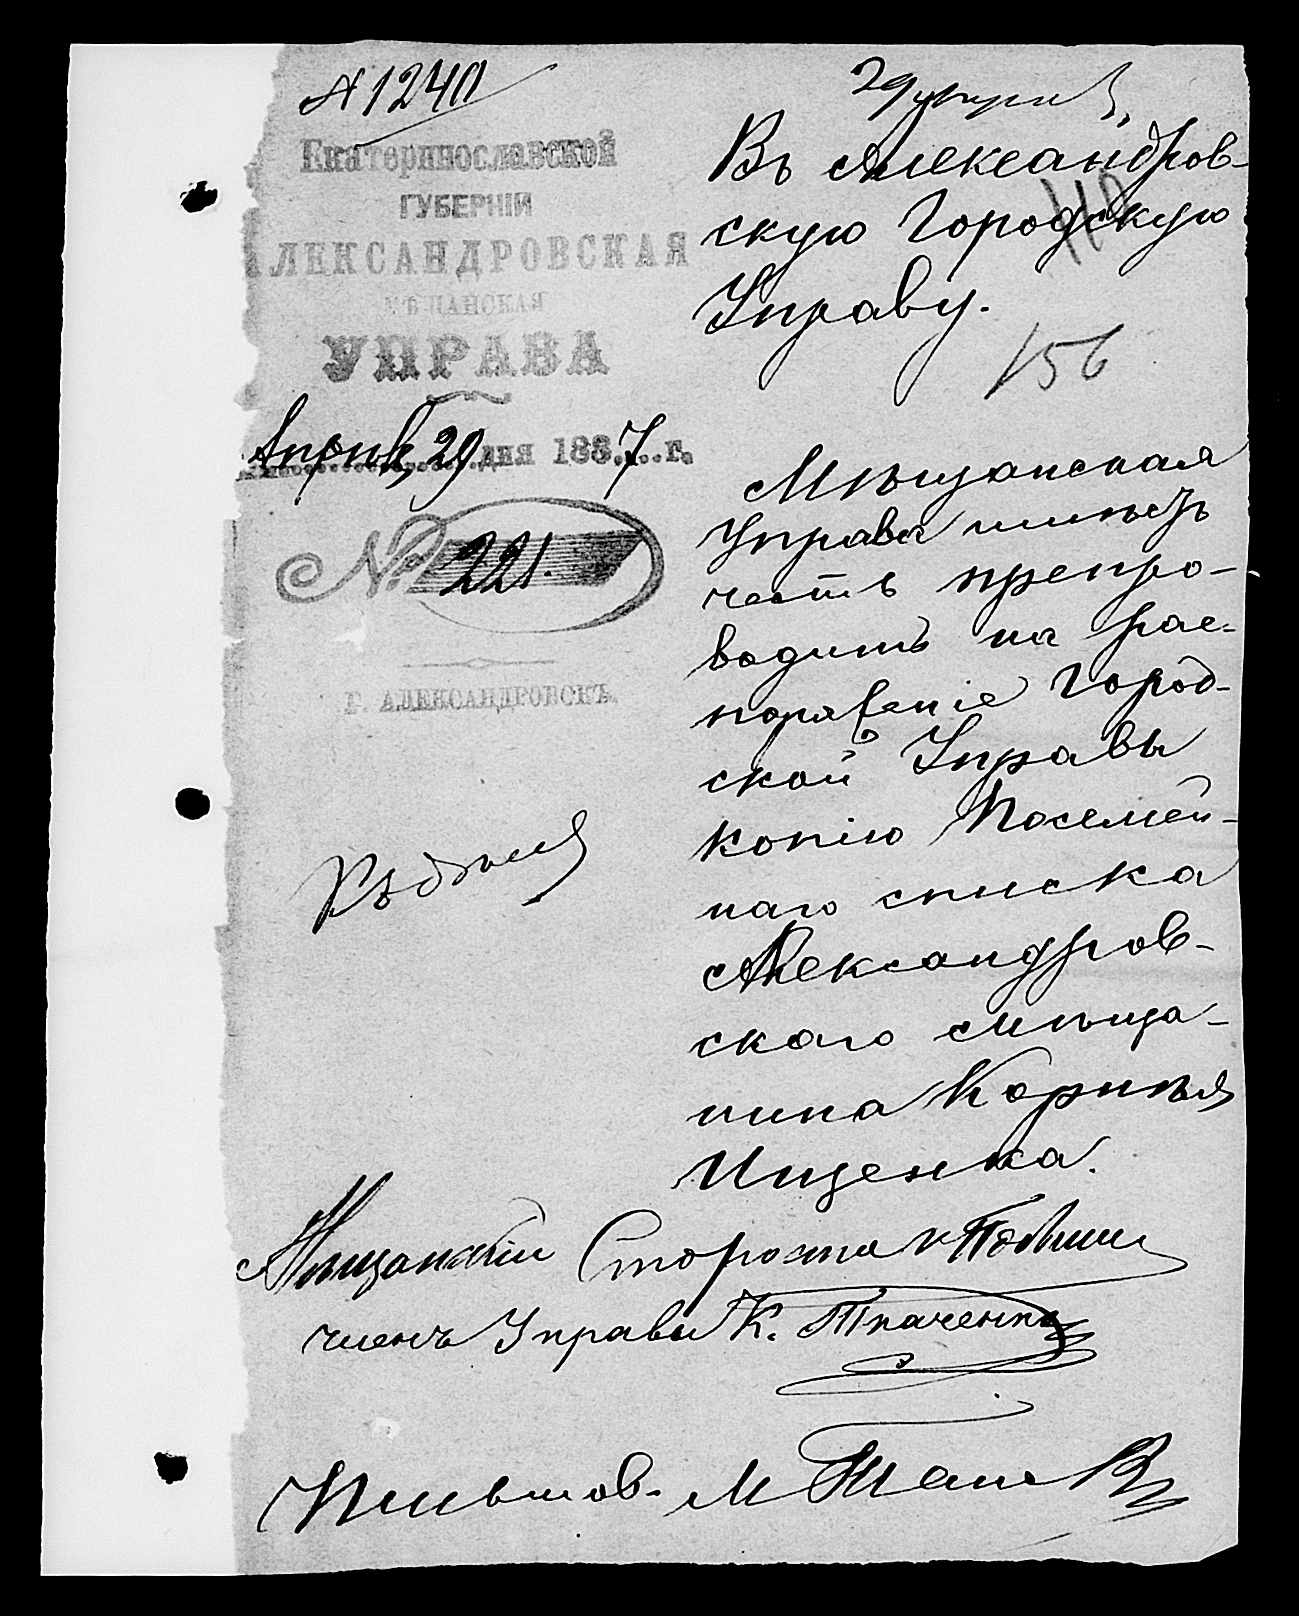 № 1240
Екатеринославской
ГУБЕРНІИ
ЛЕКСАНДРОВСКАЯ
МѢЩАНСКАЯ
УПРАВА
Апрѣля 29 дня 1887 г.
№ 221.
Г. АЛЕКСАНДРОВСКЪ.
29
Въ Александров-
скую Городскую
Управу.
110
156
Мѣщанская
Управа имѣетъ
честь препро-
водить на рас-
поряженіе Город-
ской Управы
копію Посемей-
наго списка
Александров-
скаго мѣща-
нина Корнѣя
Ищенка.
Мѣщанскій Староста
членъ Управы К. Ткаченко
Письмов. М